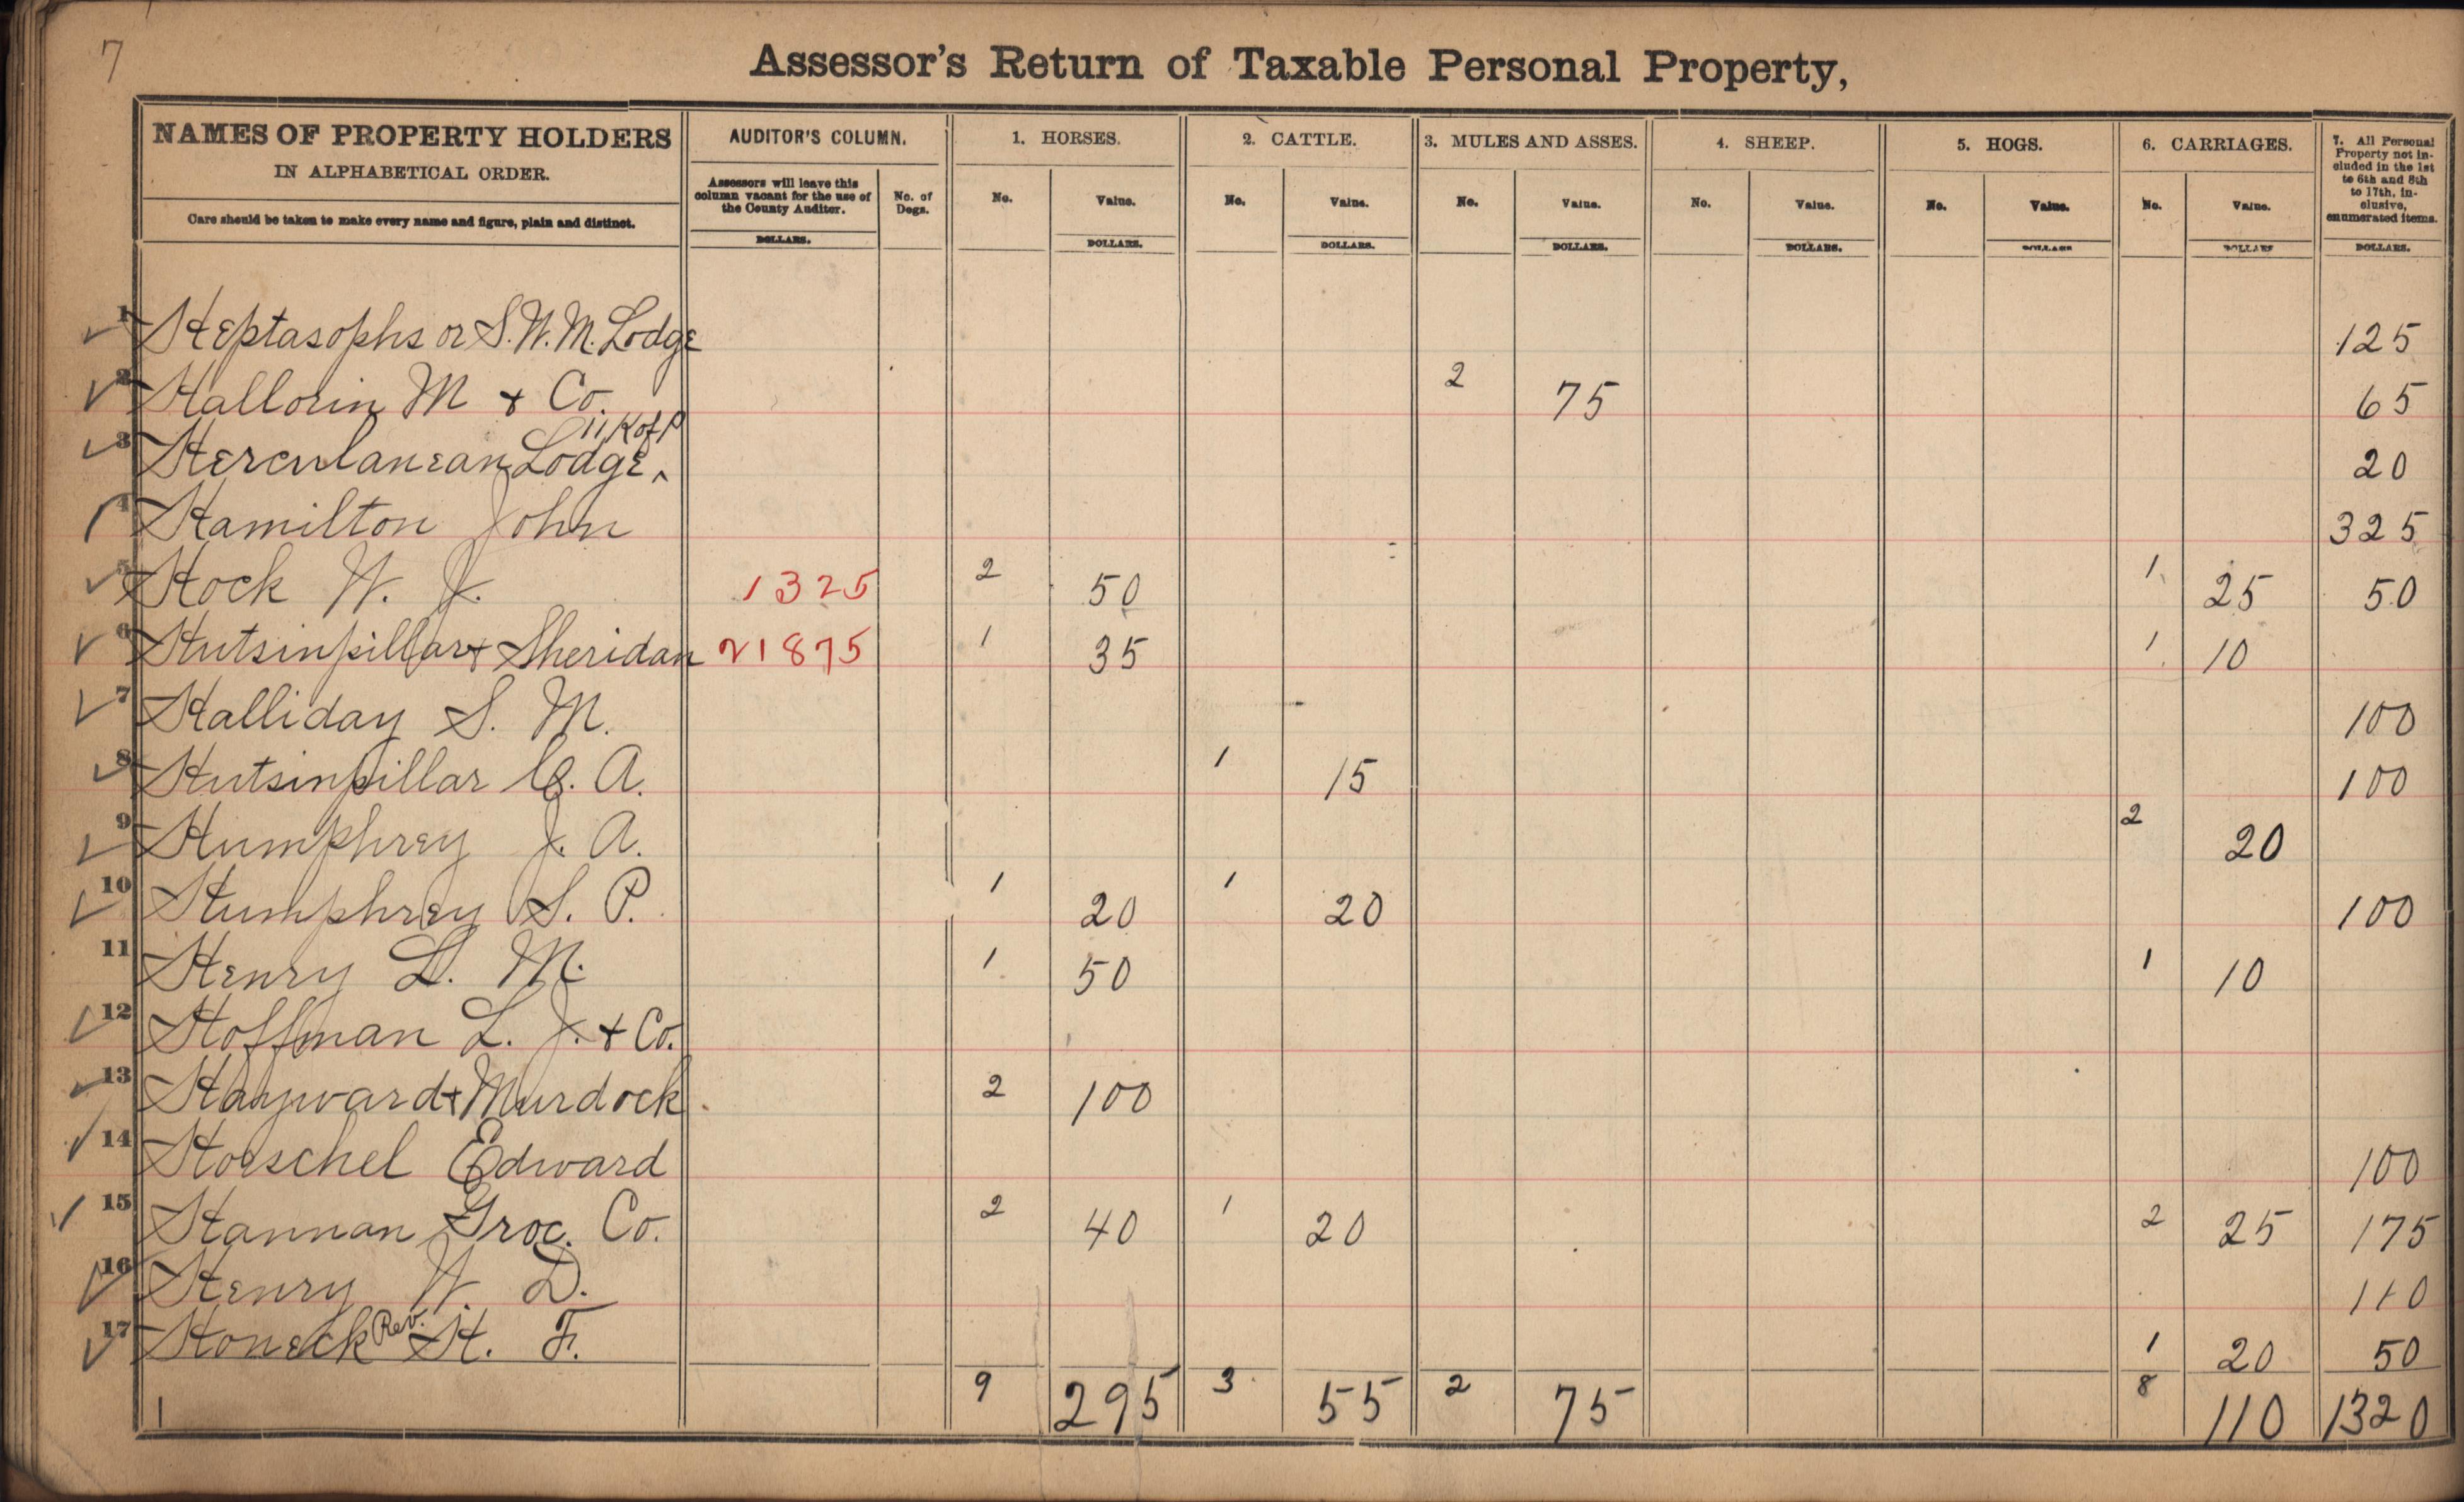 7
Assessor's Return of Taxable Personal Property,
NAMES OF PROPERTY HOLDERS
IN ALPHABETICAL ORDER.
Care should be taken to make every name and figure, plain and distinct.
AUDITOR'S COLUMN.
Assessors will leave this column vacant for the use of the County Auditor.
DOLLARS.
No. of Dogs.
1. HORSES.
No. Value.
DOLLARS.
2. CATTLE.
No. Value.
DOLLARS.
3. MULES AND ASSES.
No. Value.
DOLLARS.
4. SHEEP.
No. Value.
DOLLARS.
5. HOGS.
No. Value.
DOLLARS
6. CARRIAGES.
No. Value.
DOLLARS
7. All Personal Property not included in the 1st to 6th and 8th to 17th, inclusive, enumerated items.
DOLLARS.
1 Heptasophs or S.W.M. Lodge 125
2 Hallorin M & Co. 2 75 65
3 Herculanean Lodge, 11, K of P 20
4 Hamilton John 325
5 Hock W. J. 1325 2 50 1 25 50
6 Hutsinpillar & Sheridan 21875 1 35 1 10
7 Halliday S. M. 100
8 Hutsinpillar C. A. 1 15 100
9 Humphrey J. A. 2 20
10 Humphrey S. P. 1 20 1 20 100
11 Henry L. M. 1 50 1 10
12 Hoffman L. J. & Co.
13 Hayward & Murdock 2 100
14 Hoeschel Edward 100
15 Hannan Groc. Co. 2 40 1 20 2 25 175
16 Henry W. D. 110
17 Honeck Rev. H. F. 1 20 50
9 295 3 55 2 75 8 110 1320